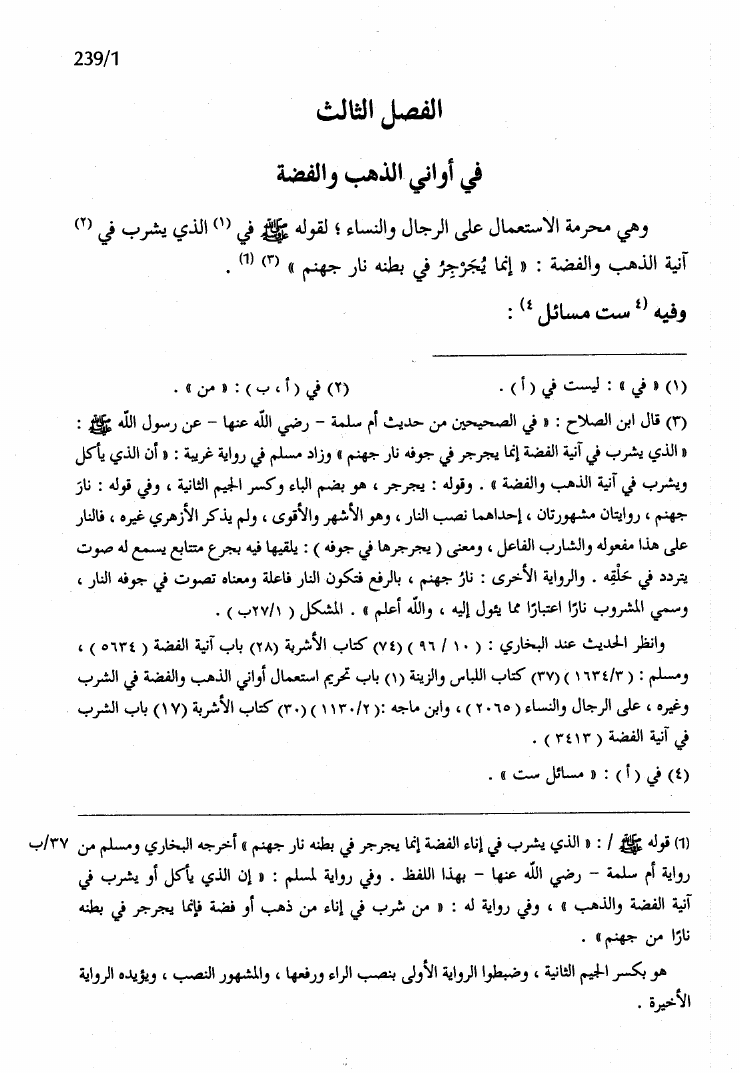 239/1
الفصل الثالث
في أواني الذهب والفضة
وهي محرمة الاستعمال على الرجال والنساء ؛ لقوله ﷺ في (١) الذي يشرب في (٢)
آنية الذهب والفضة : « إنما يُجَرْجِرُ في بطنه نار جهنم » (٣) (٦) .
وفيه (٤ ست مسائل ٤) :
(١) « في » : ليست في ( أ ) . (٢) في ( أ ، ب ) : « من » .
(٣) قال ابن الصلاح : « في الصحيحين من حديث أم سلمة - رضي الله عنها - عن رسول الله ﷺ :
« الذي يشرب في آنية الفضة إنما يجرجر في جوفه نار جهنم » وزاد مسلم في رواية غريبة : « أن الذي يأكل
ويشرب في آنية الذهب والفضة » . وقوله : يجرجر ، هو بضم الياء وكسر الجيم الثانية ، وفي قوله : نارَ
جهنم ، روايتان مشهورتان ، إحداهما نصب النار ، وهو الأشهر والأقوى ، ولم يذكر الأزهري غيره ، فالنار
على هذا مفعوله والشارب الفاعل ، ومعنى ( يجرجرها في جوفه ) : يلقيها فيه بجرع متتابع يسمع له صوت
يتردد في حَلْقِه . والرواية الأخرى : نارُ جهنم ، بالرفع فتكون النار فاعلة ومعناه تصوت في جوفه النار ،
وسمي المشروب نارًا اعتبارًا مما يئول إليه ، والله أعلم » . المشكل ( ٢٧/١ب ) .
وانظر الحديث عند البخاري : ( ١٠ / ٩٦ ) (٧٤) كتاب الأشربة (٢٨) باب آنية الفضة ( ٥٦٣٤ ) ،
ومسلم : ( ١٦٣٤/٣ ) (٣٧) كتاب اللباس والزينة (١) باب تحريم استعمال أواني الذهب والفضة في الشرب
وغيره ، على الرجال والنساء ( ٢٠٦٥ ) ، وابن ماجه :( ١١٣٠/٢ ) (٣٠) كتاب الأشربة (١٧) باب الشرب
في آنية الفضة ( ٣٤١٣ ) .
(٤) في ( أ ) : « مسائل ست » .
(٦) قوله ﷺ / : « الذي يشرب في إناء الفضة إنما يجرجر في بطنه نار جهنم » أخرجه البخاري ومسلم من ٣٧/ب
رواية أم سلمة - رضي الله عنها - بهذا اللفظ . وفي رواية لمسلم : « إن الذي يأكل أو يشرب في
آنية الفضة والذهب » ، وفي رواية له : « من شرب في إناء من ذهب أو فضة فإنما يجرجر في بطنه
نارًا من جهنم» .
هو بكسر الجيم الثانية ، وضبطوا الرواية الأولى بنصب الراء ورفعها ، والمشهور النصب ، ويؤيده الرواية
الأخيرة .